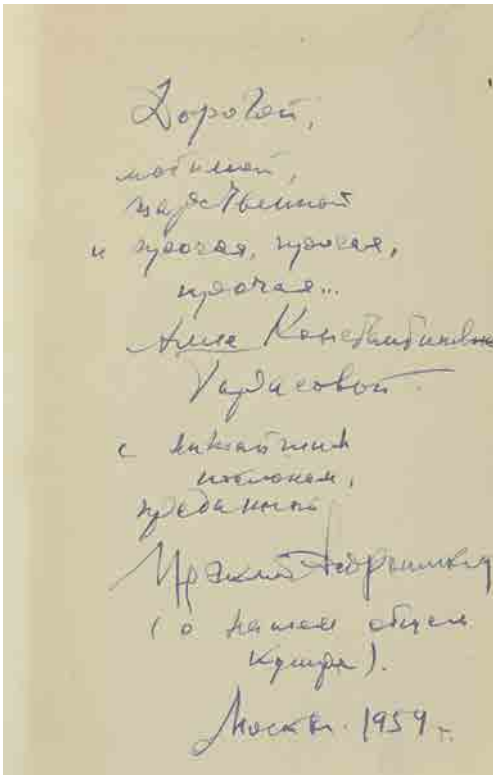 Дорогой,
любимой,
царственной
и прочая, прочая,
прочая...
Алле Константиновне
Тарасовой
с нижайшим
поклоном,
преданный
Ираклий Андроников
(о нашем общем
кумире).
Москва. 1959 г.